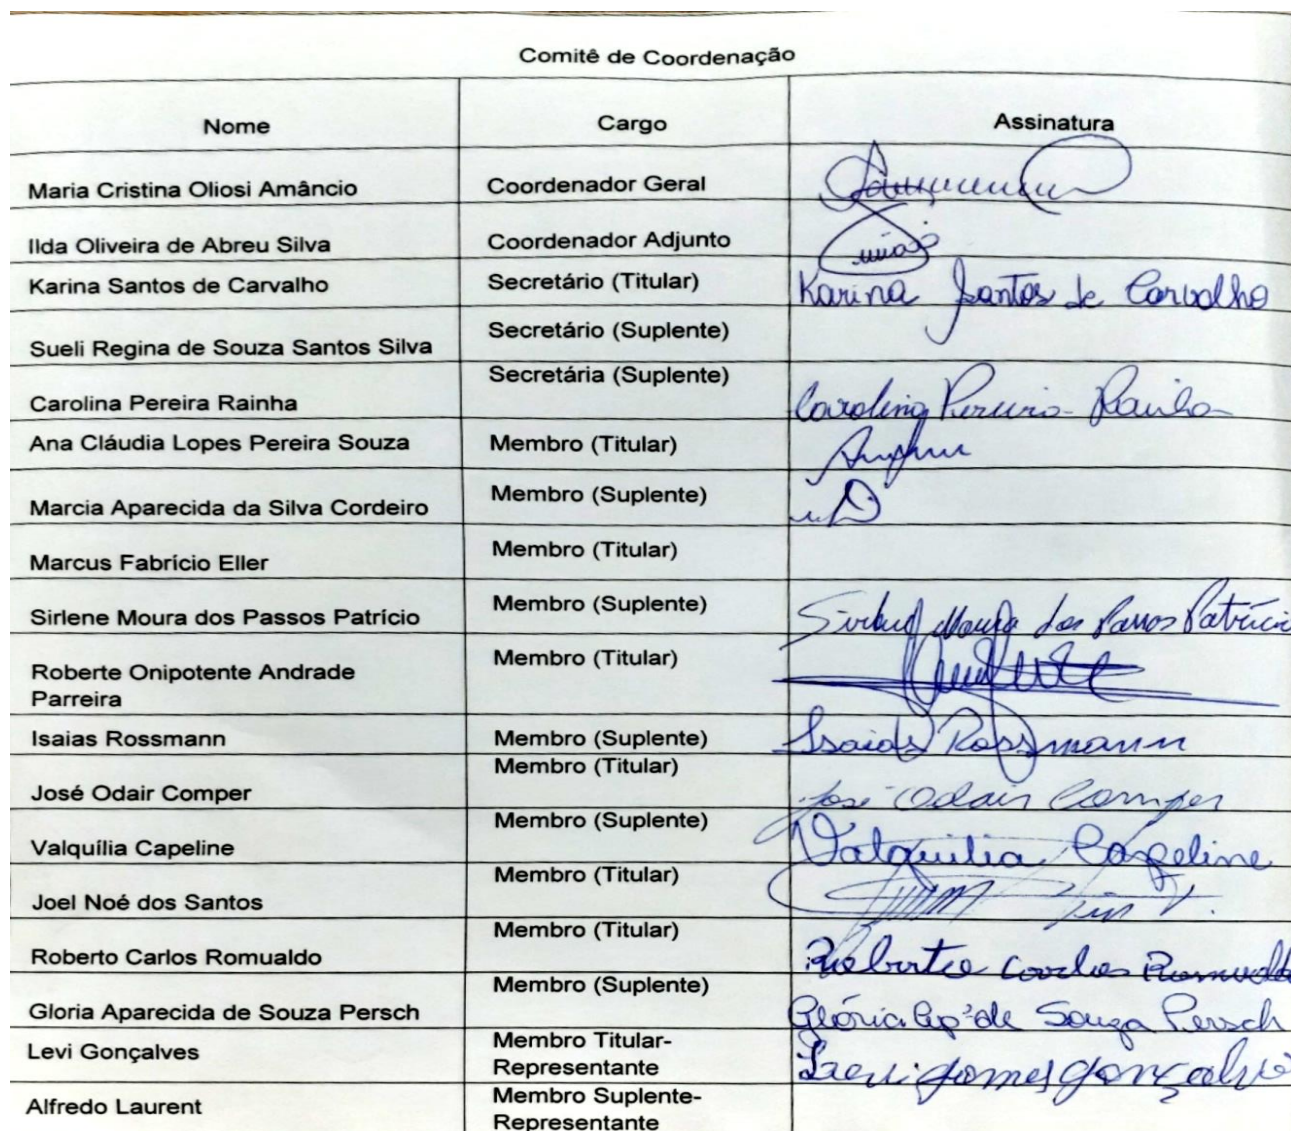 Comitê de Coordenação
Nome Cargo Assinatura
Maria Cristina Oliosi Amâncio Coordenador Geral
Ilda Oliveira de Abreu Silva Coordenador Adjunto
Karina Santos de Carvalho Secretário (Titular) Karina Santos de Carvalho
Sueli Regina de Souza Santos Silva Secretário (Suplente)
Carolina Pereira Rainha Secretária (Suplente) Carolina Pereira Rainha
Ana Cláudia Lopes Pereira Souza Membro (Titular)
Marcia Aparecida da Silva Cordeiro Membro (Suplente)
Marcus Fabrício Eller Membro (Titular)
Sirlene Moura dos Passos Patrício Membro (Suplente) Sirlene Moura dos Passos Patrício
Roberte Onipotente Andrade Membro (Titular)
Parreira
Isaias Rossmann Membro (Suplente) Isaias Rossmann
José Odair Comper Membro (Titular) José Odair Comper
Valquília Capeline Membro (Suplente) Valquilia Capeline
Joel Noé dos Santos Membro (Titular)
Roberto Carlos Romualdo Membro (Titular) Roberto Carlos Romualdo
Gloria Aparecida de Souza Persch Membro (Suplente) Glória Apª de Souza Persch
Levi Gonçalves Membro Titular- Levi gomes gonçalves
Representante
Alfredo Laurent Membro Suplente-
Representante